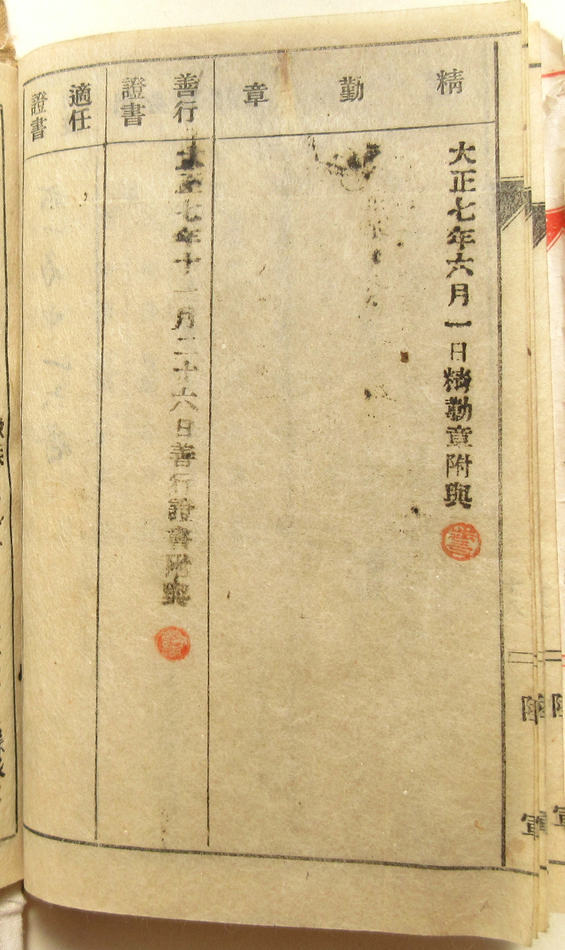 精勤章
大正七年六月一日精勤章附與
善行證書
大正七年十一月二十六日善行證書附與
適任證書
陸軍